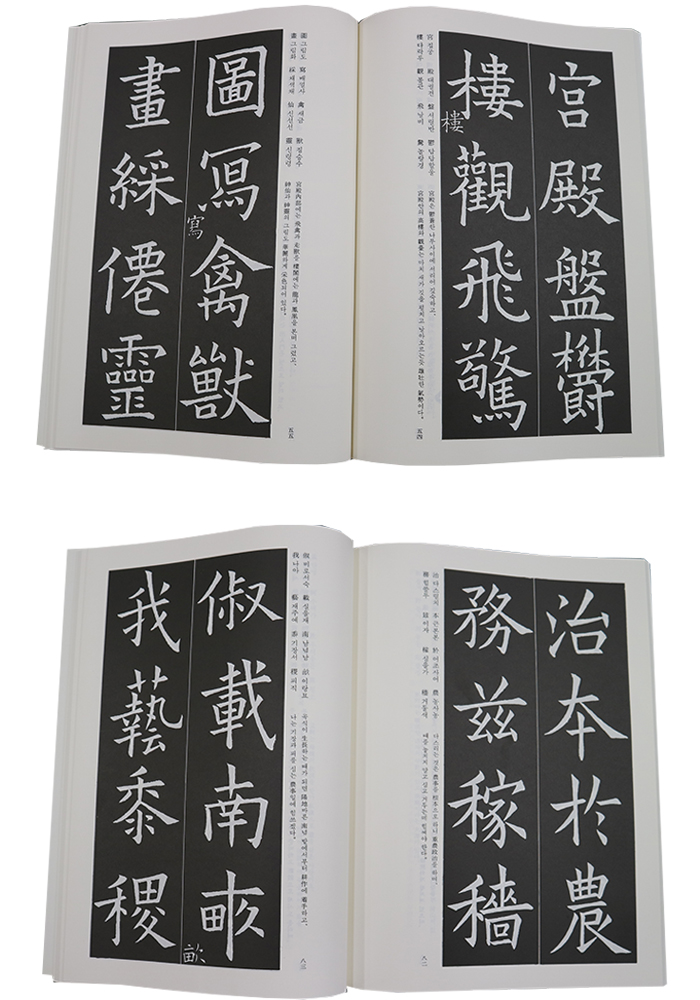 宮殿盤鬱
樓觀飛驚
樓
宮 집궁 殿 대궐전 盤 서릴반 鬱 답답할울
樓 다락루 觀 볼관 飛 날비 驚 놀랄경
五四
圖寫禽獸
寫
畫綵僊靈
圖 그림도 寫 베낄사 禽 새금 獸 짐승수
畫 그림화 綵 채색채 仙 신선선 靈 신령령
五五
治本於農
務玆稼穡
治 다스릴치 本 근본본 於 어조사어 農 농사농
務 힘쓸무 玆 이자 稼 심을가 穡 거둘색
八二
俶載南畝
畝
我藝黍稷
俶 비로서숙 載 실을재 南 남녘남 畝 이랑묘
我 나아 藝 재주예 黍 기장서 稷 피직
나는 기장과 피를 심는 農事일에 힘쓰겠다.
八三